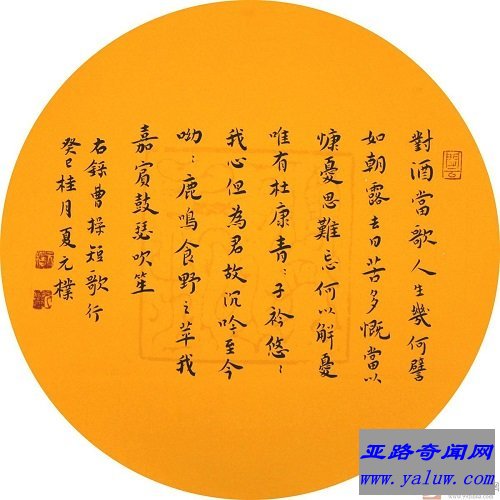 對酒當歌人生幾何譬
如朝露去日苦多慨當以
慷憂思難忘何以解憂
唯有杜康青〻子衿悠〻
我心但為君故沉吟至今
呦〻鹿鳴食野之苹我
嘉賓鼓瑟吹笙
右錄曹操短歌行
癸巳桂月夏元樸
亚路奇闻网
www.yaluw.com